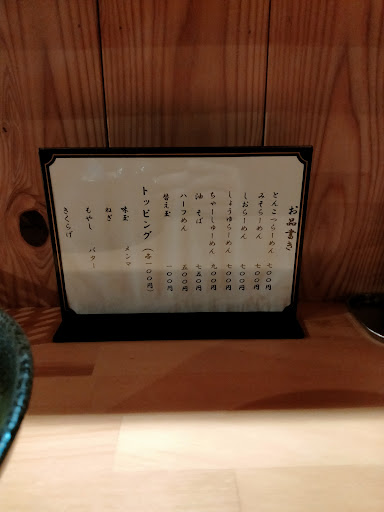 お品書き
とんこつらーめん 七〇〇円
みそらーめん 七〇〇円
しおらーめん 七〇〇円
しょうゆらーめん 七〇〇円
ちゃーしゅーめん 九〇〇円
油そば 七五〇円
ハーフめん 五〇〇円
替え玉 一〇〇円
トッピング(各一〇〇円)
味玉 メンマ
ねぎ
もやし バター
きくらげ